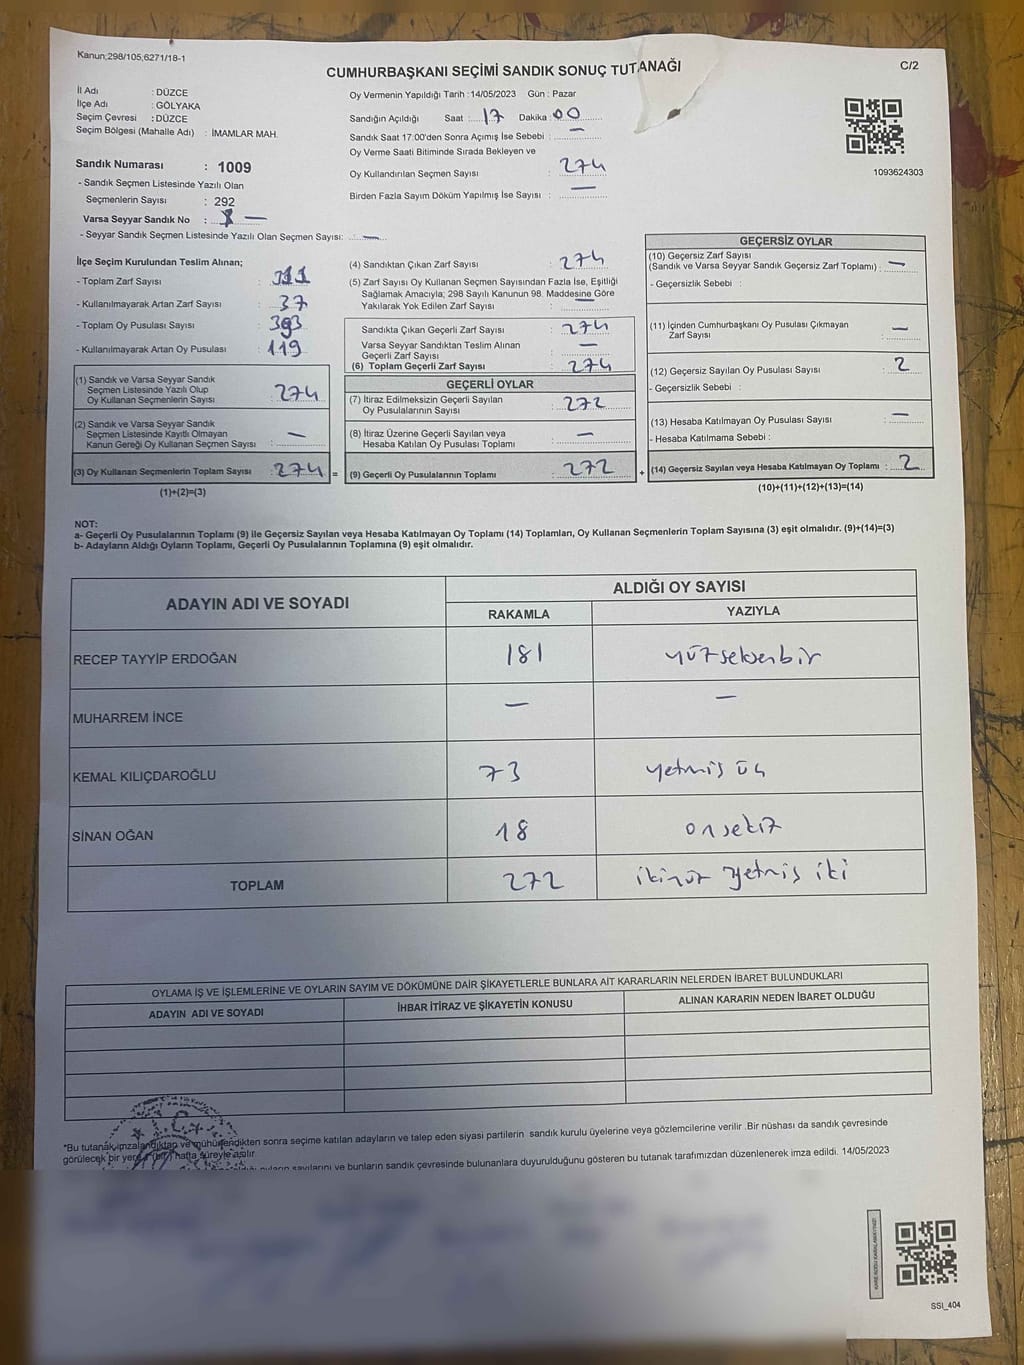 Kanun;298/105,6271/18-1
CUMHURBAŞKANI SEÇİMİ SANDIK SONUÇ TUTANAĞI
C/2
İl Adı : DÜZCE
İlçe Adı : GÖLYAKA
Seçim Çevresi : DÜZCE
Seçim Bölgesi (Mahalle Adı) : İMAMLAR MAH.
Sandık Numarası : 1009
- Sandık Seçmen Listesinde Yazılı Olan
Seçmenlerin Sayısı : 292
Varsa Seyyar Sandık No : —
- Seyyar Sandık Seçmen Listesinde Yazılı Olan Seçmen Sayısı: —
Oy Vermenin Yapıldığı Tarih :14/05/2023 Gün : Pazar
Sandığın Açıldığı Saat : 17 Dakika : 00
Sandık Saat 17:00'den Sonra Açımış İse Sebebi : —
Oy Verme Saati Bitiminde Sırada Bekleyen ve
Oy Kullandırılan Seçmen Sayısı : 274
Birden Fazla Sayım Döküm Yapılmış İse Sayısı : —
1093624303
İlçe Seçim Kurulundan Teslim Alınan;
- Toplam Zarf Sayısı : 311
- Kullanılmayarak Artan Zarf Sayısı : 37
- Toplam Oy Pusulası Sayısı : 393
- Kullanılmayarak Artan Oy Pusulası : 119
(1) Sandık ve Varsa Seyyar Sandık
Seçmen Listesinde Yazılı Olup
Oy Kullanan Seçmenlerin Sayısı : 274
(2) Sandık ve Varsa Seyyar Sandık
Seçmen Listesinde Kayıtlı Olmayan
Kanun Gereği Oy Kullanan Seçmen Sayısı : —
(3) Oy Kullanan Seçmenlerin Toplam Sayısı : 274 =
(1)+(2)=(3)
(4) Sandıktan Çıkan Zarf Sayısı : 274
(5) Zarf Sayısı Oy Kullanan Seçmen Sayısından Fazla İse, Eşitliği
Sağlamak Amacıyla; 298 Sayılı Kanunun 98. Maddesine Göre
Yakılarak Yok Edilen Zarf Sayısı : —
Sandıkta Çıkan Geçerli Zarf Sayısı : 274
Varsa Seyyar Sandıktan Teslim Alınan
Geçerli Zarf Sayısı : —
(6) Toplam Geçerli Zarf Sayısı : 274
GEÇERLİ OYLAR
(7) İtiraz Edilmeksizin Geçerli Sayılan
Oy Pusulalarının Sayısı : 272
(8) İtiraz Üzerine Geçerli Sayılan veya
Hesaba Katılan Oy Pusulası Toplamı : —
(9) Geçerli Oy Pusulalarının Toplamı : 272 +
GEÇERSİZ OYLAR
(10) Geçersiz Zarf Sayısı
(Sandık ve Varsa Seyyar Sandık Geçersiz Zarf Toplamı) : —
- Geçersizlik Sebebi :
(11) İçinden Cumhurbaşkanı Oy Pusulası Çıkmayan
Zarf Sayısı : —
(12) Geçersiz Sayılan Oy Pusulası Sayısı : 2
- Geçersizlik Sebebi :
(13) Hesaba Katılmayan Oy Pusulası Sayısı : —
- Hesaba Katılmama Sebebi :
(14) Geçersiz Sayılan veya Hesaba Katılmayan Oy Toplamı : 2
(10)+(11)+(12)+(13)=(14)
NOT:
a- Geçerli Oy Pusulalarının Toplamı (9) ile Geçersiz Sayılan veya Hesaba Katılmayan Oy Toplamı (14) Toplamları, Oy Kullanan Seçmenlerin Toplam Sayısına (3) eşit olmalıdır. (9)+(14)=(3)
b- Adayların Aldığı Oyların Toplamı, Geçerli Oy Pusulalarının Toplamına (9) eşit olmalıdır.
ADAYIN ADI VE SOYADI ALDIĞI OY SAYISI
RAKAMLA YAZIYLA
RECEP TAYYİP ERDOĞAN 181 yüzseksenbir
MUHARREM İNCE — —
KEMAL KILIÇDAROĞLU 73 yetmiş üç
SİNAN OĞAN 18 onsekiz
TOPLAM 272 ikiyüz yetmiş iki
OYLAMA İŞ VE İŞLEMLERİNE VE OYLARIN SAYIM VE DÖKÜMÜNE DAİR ŞİKAYETLERLE BUNLARA AİT KARARLARIN NELERDEN İBARET BULUNDUKLARI
ADAYIN ADI VE SOYADI İHBAR İTİRAZ VE ŞİKAYETİN KONUSU ALINAN KARARIN NEDEN İBARET OLDUĞU
*Bu tutanak,imzalandıktan ve mühürlendikten sonra seçime katılan adayların ve talep eden siyasi partilerin sandık kurulu üyelerine veya gözlemcilerine verilir .Bir nüshası da sandık çevresinde
görülecek bir yere 1 (bir) hafta süreyle asılır.
oyların sayılarını ve bunların sandık çevresinde bulunanlara duyurulduğunu gösteren bu tutanak tarafımızdan düzenlenerek imza edildi. 14/05/2023
SSI_404